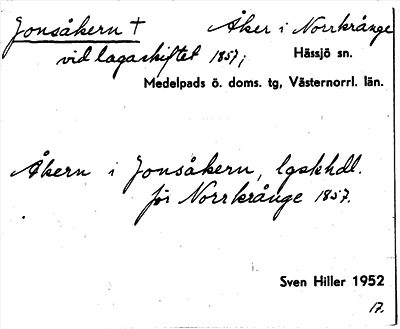 Jonsåkern † Åker i Norrkrånge
vid lagaskiftet 1857; Hässjö sn.
Medelpads ö. doms. tg, Västernorrl. län.
Åkern i Jonsåkern, lgskhdl.
för Norrkrånge 1857.
Sven Hiller 1952
17.